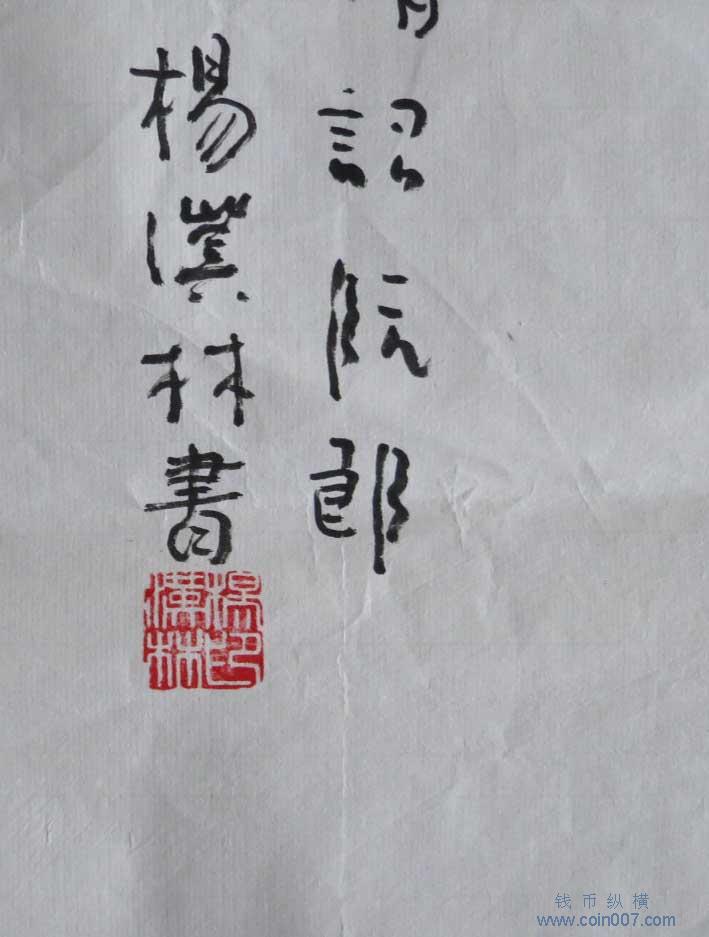 阮郎
楊漢林書
楊印
漢林
钱币纵横
www.coin007.com